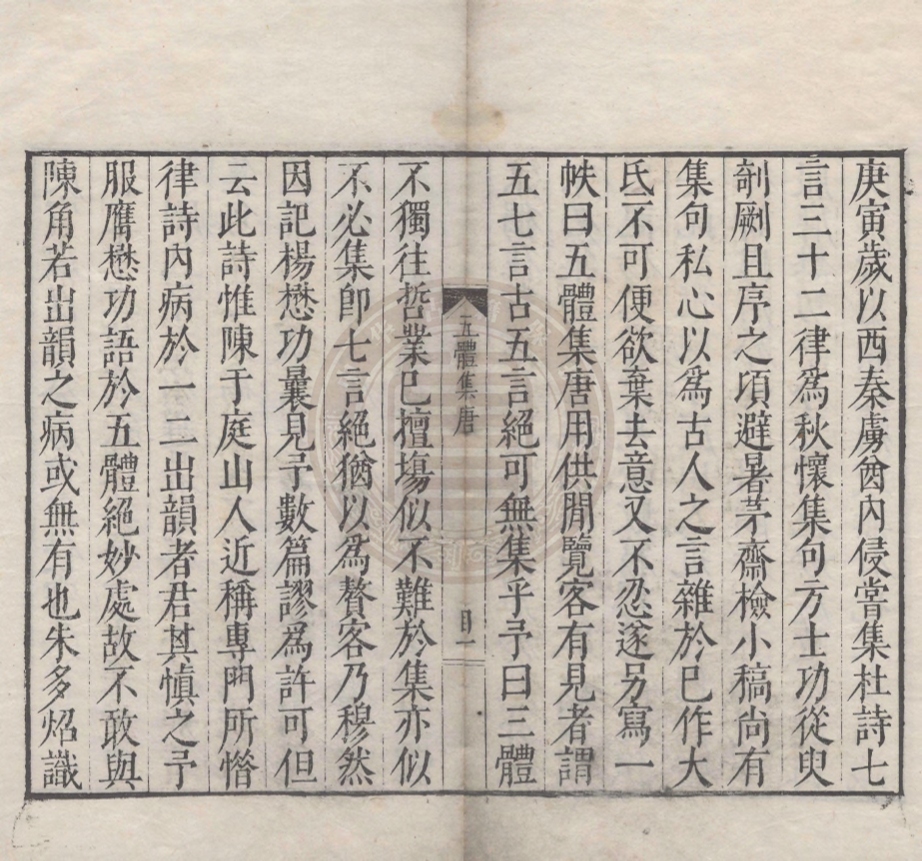 庚寅歲以西秦虜酋內侵嘗集杜詩七
言三十二律爲秋懷集句方士功從臾
剞劂且序之頃避暑茅齋檢小稿尚有
集句私心以爲古人之言雜於已作大
氐不可便欲棄去意又不忍遂另寫一
帙曰五體集唐用供閒覽客有見者謂
五七言古五言絕可無集乎予曰三體
五體集唐
目一
不獨往哲業已擅塲似不難於集亦似
不必集卽七言絕猶以爲贅客乃穆然
因記楊懋功曩見予數篇謬爲許可但
云此詩惟陳于庭山人近稱專門所惜
律詩內病於一二出韻者君其愼之予
服膺懋功語於五體絕妙處故不敢與
陳角若出韻之病或無有也朱多炤識